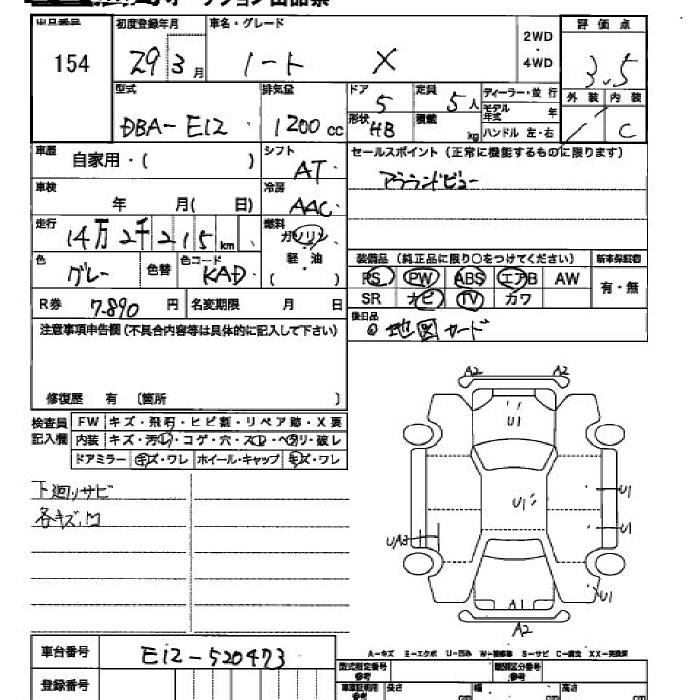 オークション出品票
出品番号 初度登録年月 車名・グレード 2WD ・ 4WD 評価点
154 29 3月 ノート X 3.5
型式 排気量 ドア 5 定員 5人 ディーラー・並行 外装 内装
DBA-E12 1200cc 形状 HB 積載 kg モデル年式 年 C
ハンドル 左・右
車歴 自家用・( ) シフト AT セールスポイント(正常に機能するものに限ります)
車検 年 月( 日) 冷房 AAC アラウンドビュー
走行 14万2千215km 燃料 ガソリン・軽油・
色 グレー 色替 色コード KAD 装備品(純正品に限り○をつけてください) 新車保証書
PS PW ABS エアB AW 有・無
R券 7.890円 名変期限 月 日 SR ナビ TV カワ
注意事項申告欄(不具合内容等は具体的に記入して下さい) 後日品
地図カード
修復歴 有 〔箇所 〕
検査員記入欄 FW キズ・飛石・ヒビ割・リペア跡・X要
内装 キズ・汚レ・コゲ・穴・スレ・ヘタリ・破レ
ドアミラー キズ・ワレ ホイール・キャップ キズ・ワレ
下廻りサビ
各キズ.M
A2 A2
U1
U1
U1
U1
UA2
U1
A1
A2
A-キズ E-エクボ U-凹み W-補修跡 S-サビ C-腐食 XX-交換済
車台番号 E12-520473
登録番号
型式指定番号 類別区分番号
長さ cm 幅 cm 高さ cm